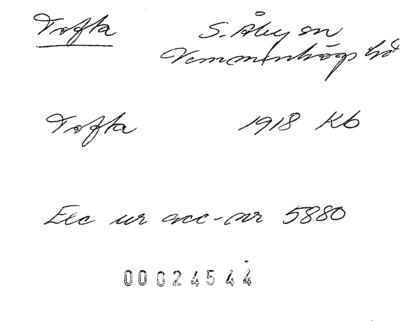 Tofta S. Åby sn
Vemmenhögs hd
Tofta 1918 Kb
Exc ur acc-nr 5880
00024544